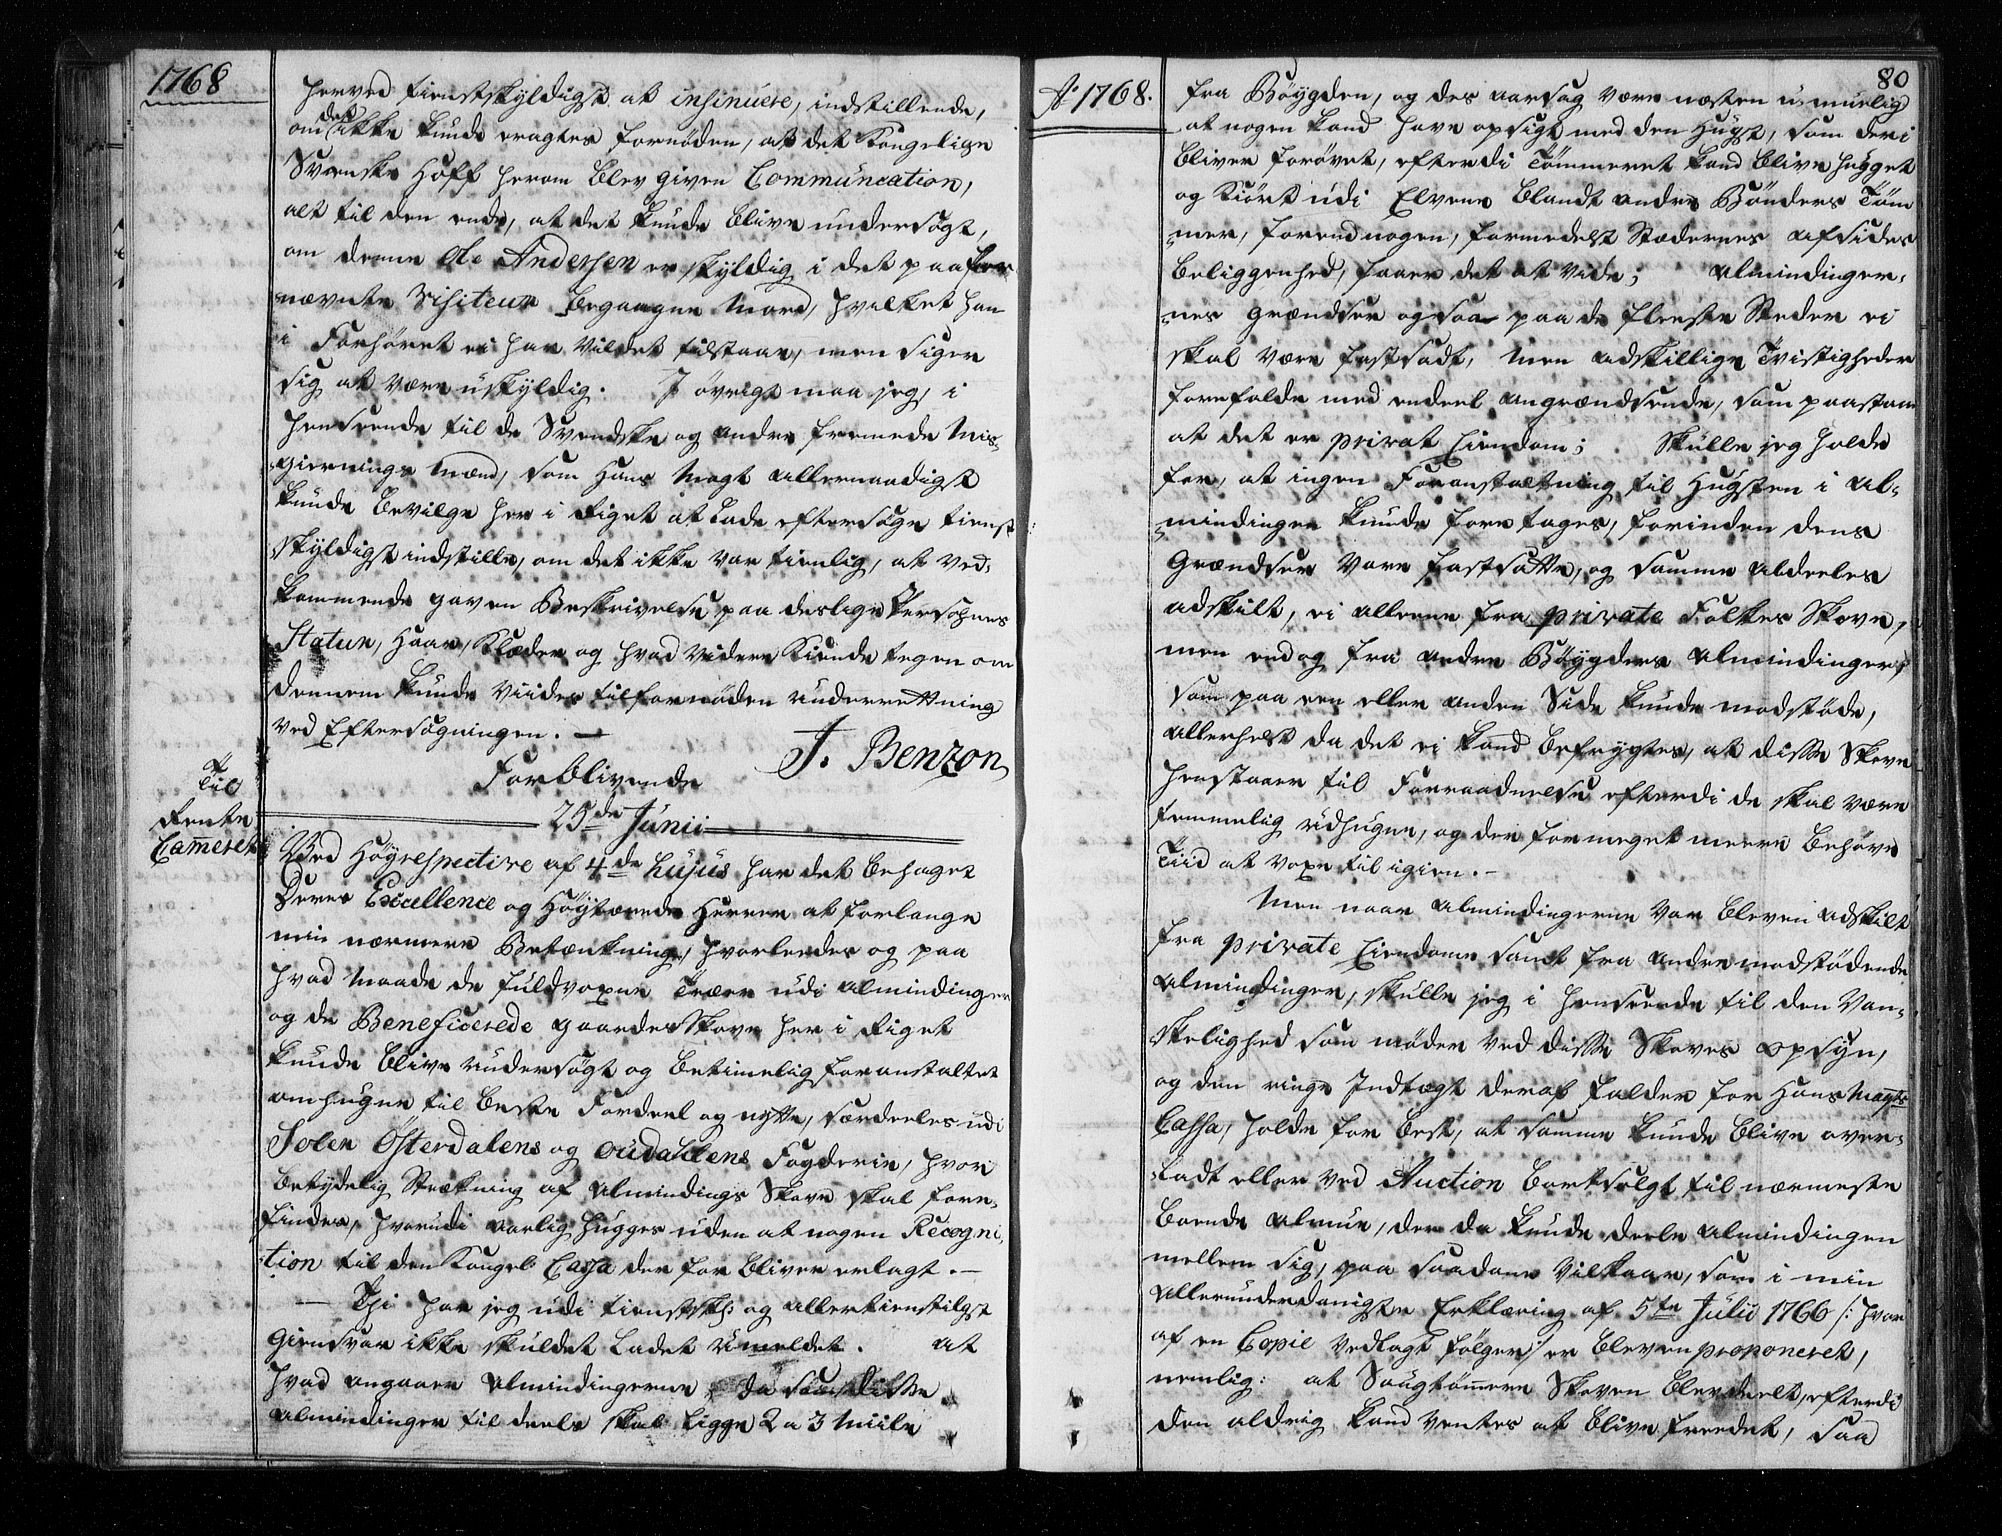 1768
herved tienstskyldigst at insinuere, indstillende,
om det ikke kunde eragtes fornöden, at det Kongelige
Svenske Hoff herom blev given Communcation,
alt til den ende, at det kunde blive undersögt,
om denne Ole Andersen er skyldig i det paa for
nævnte Visiteur begaagne Mord, hvilket han
i Forhöret ei har vildet tilstaae, men siger
sig at være uskyldig. I övrigt maa jeg, i
henseende til de Svendske og andre fremede Mis¬
giernings Mænd, som Hans Mayt allernaadigst
kunde bevilge her i Riget at lade eftersöge tienst
skyldigst indstille, om det ikke var tienlig, at ved¬
kommende gav en Beskrivelse paa deslige Persohners
Statur, Haar, Klæder og hvad videre Kiende tegen om
dennem kunde viides til fornöden underrettning
ved Eftersögningen. —
Forblivende
J. Benzon
25de Junii
Til
Rente
Cameret
Ved Höyrespective af 4de hujus har det behaget
Deres Excellence og Höytærede Herrer at forlange
min nærmere Betænkning, hvorleedes og paa
hvad Maade de fuldvoxne Træer udi Almindinger
og de Beneficerede gaardes Skove her i Riget
kunde blive undersögt og betimelig foranstaltet
omhugne til beste Fordeel og nytte, særdeeles udi
Solen Osterdalens og Oudahlens Fogderie, hvor
betydelig Strækning af Almindings Skove skal fore¬
findes, hvorudi aarlig hugges uden at nogen Recogni¬
tion til den Kongel Cassa derfor bliver erlagt. —
— Thi har jeg udi tienstskl: og allertienstligst
Giensvar ikke skuldet ladet umeldet. At
hvad angaaer Almindingerne, da som disse
Almindinger til deels skal ligge 2 a 3 Miile
Ao 1768.
80
fra Böygden, og des aarsag være næsten umuelig
at nogen kand have opsigt med den Hugst, som deri
bliver forövet, efterdi Tömmeret kand blive hugget
og Kiört udi Elvene blandt andre Bönders Töm
mer, forend nogen, formedelst Stædernes afsides
beliggenhed, faaer det at vide; Almindinger¬
nes Grændser ogsaa paa de fleeste Steder ei
skal være fastsadt, Men adskillige Tvistigheder
forefalde med endeel angrændsende, som paastaae
at det er privat Eiendom; Skulle jeg holde
for, at ingen Foranstaltning til Hugsten i Al¬
mindingen kunde foretages, forinden dens
Grændser vare fastsatte, og samme aldeeles
adskilt, ei alleene fra private Folkes Skove,
men endog fra andre Böygders Almindinger,
som paa een eller anden Side kunde modstöde,
allerhelst da det ei kand befrygtes, at disse Skove
henstaaer til Forraadnelse efterdi de skal være
temmelig udhugne, og derfor meget meere behöve
Tiid at voxe til igien. —
Men naar Almindingerne var bleven adskilt
fra private Eiendomme samt fra andre modstödende
Almindinger, skulle jeg i henseende til den Van¬
skelighed som möder ved disse Skoves Opsyn,
og den ringe Indtægt deraf falder for Hans Mayts
Cassa, holde for best, at samme kunde blive over¬
ladt eller ved Auction bortsolgt til nærmeste
boende Almue, der da kunde deele Almindingen
mellem sig, paa saadanne Vilkaar, som i min
allerunderdanigste Erklæring af 5te Julii 1766 /: hvor
af en Copie vedlagt fölger/ er bleven proponeret,
nemlig: at Saugtömmer Skoven blev deelt, efterdi
den aldrig kand ventes at blive freedet, saa